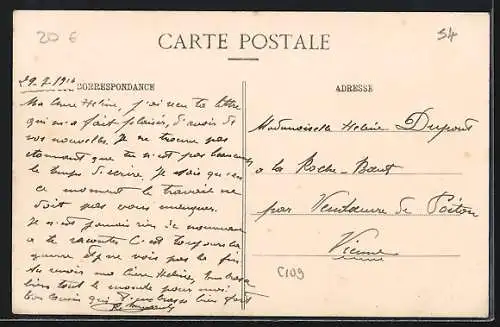 20 €
54
CARTE POSTALE
CORRESPONDANCE
ADRESSE
29.7.1916
Ma chère Hélène, j'ai reçu ta lettre
qui m'a fait plaisir, d'avoir de
vos nouvelles. Je ne trouve pas
étonnant que tu n'est pas beaucoup
le temps d'écrire, je sais qu'en
ce moment le travail ne
doit pas vous manquer.
Je n'est jamais rien de nouveau
a te raconter c'est toujours la
guerre et je ne vois pas la fin.
Au revoir ma chère Hélène, embrasse
bien tout le monde pour moi
ton cousin qui t'embrasse bien fort
Mademoiselle Hélène Dupont
a la Roche-
par Vendeuvre de Poitou
Vienne
C109